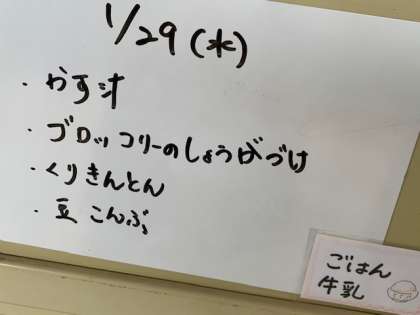 1/29(水)
・かす汁
・ブロッコリーのしょうがづけ
・くりきんとん
・豆こんぶ
ごはん
牛乳